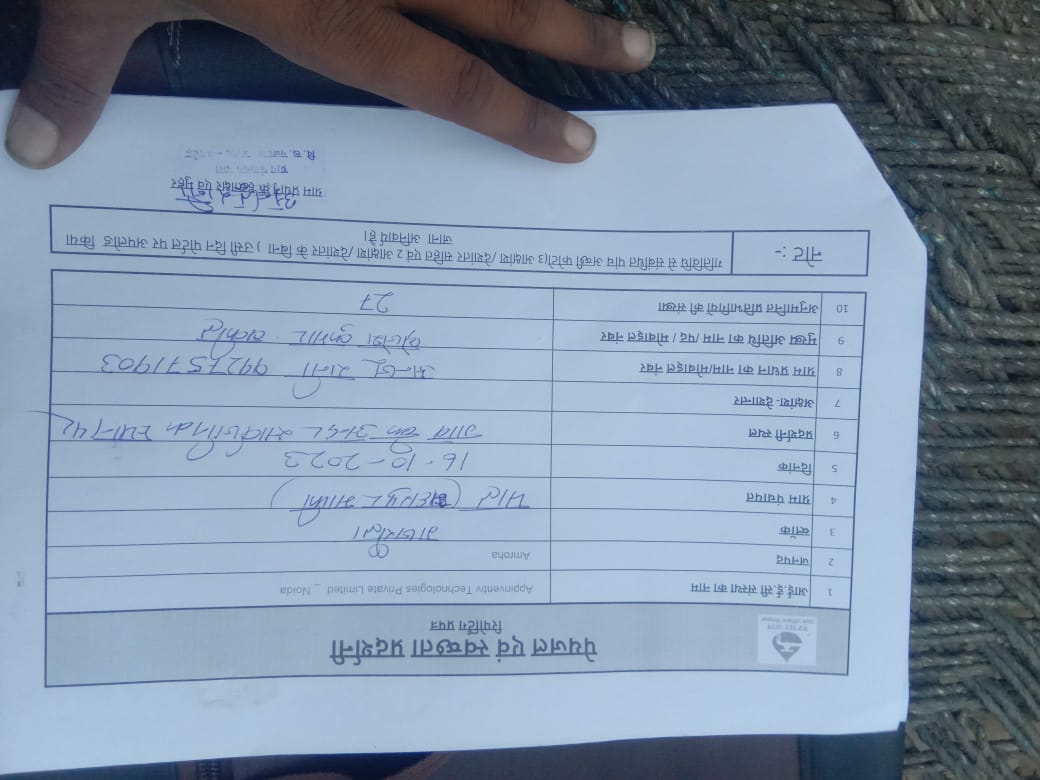 पेयजल एवं स्वच्छता प्रदर्शनी
रिपोर्टिंग प्रपत्र
1 आई.ई.सी संस्था का नाम Appinventiv Technologies Private Limited _ Noida
2 जनपद Amroha
3 ब्लॉक गजरौला
4 ग्राम पंचायत
5 दिनांक 16-10-2023
6 प्रदर्शनी स्थल गांव के अन्दर सार्वजनिक स्थान पर
7 अक्षांश- देशान्तर
8 ग्राम प्रधान का नाम/मोबाइल नंबर 9927571903
9 मुख्य अतिथि का नाम/पद / मोबाइल नंबर कुमार
10 अनुमानित प्रतिभागियों की संख्या 27
नोट :- गतिविधि से संबंधित पांच अच्छी फोटो(3 अक्षांश /देशांतर सहित एवं 2 अक्षांश /देशांतर के बिना ) उसी दिन पोर्टल पर अपलोड किया
जाना अनिवार्य है।
ग्राम प्रधान के हस्ताक्षर एवं मुहर